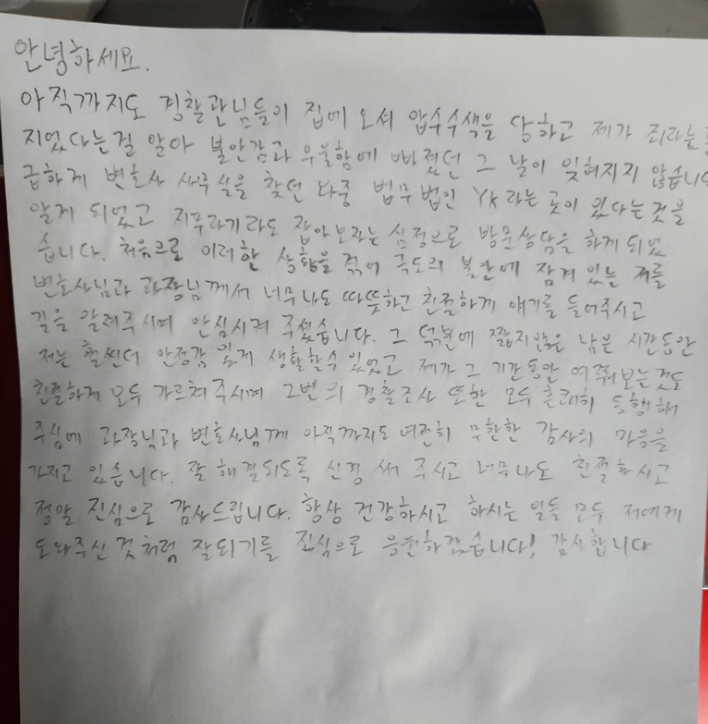 안녕하세요.
아직까지도 경찰관님들이 집에 오셔 압수수색을 당하고 제가 죄라는
지었다는걸 알아 불안감과 우울함에 빠졌던 그 날이 잊혀지지 않습니
급하게 변호사 사무실을 찾던 와중 법무법인 YK라는 곳이 있다는 것을
알게 되었고 지푸라기라도 잡아보자는 심정으로 방문상담을 하게 되었
습니다. 처음으로 이러한 상황을 겪어 극도의 불안에 잠겨 있는 저를
변호사님과 과장님께서 너무나도 따뜻하고 친절하게 얘기를 들어주시고
길을 알려주시며 안심시켜 주셨습니다. 그 덕분에 짧지않은 남은 시간동안
저는 훨씬더 안정감 있게 생활할수 있었고 제가 그 기간동안 여쭤보는것도
친절하게 모두 가르쳐주시며 2번의 경찰조사 또한 모두 흔쾌히 동행해
주심에 과장님과 변호사님께 아직까지도 여전히 무한한 감사의 마음을
가지고 있습니다. 잘 해결되도록 신경 써 주시고 너무나도 친절하시고
정말 진심으로 감사드립니다. 항상 건강하시고 하시는 일들 모두 저에게
도와주신 것처럼 잘되기를 진심으로 응원하겠습니다! 감사합니다